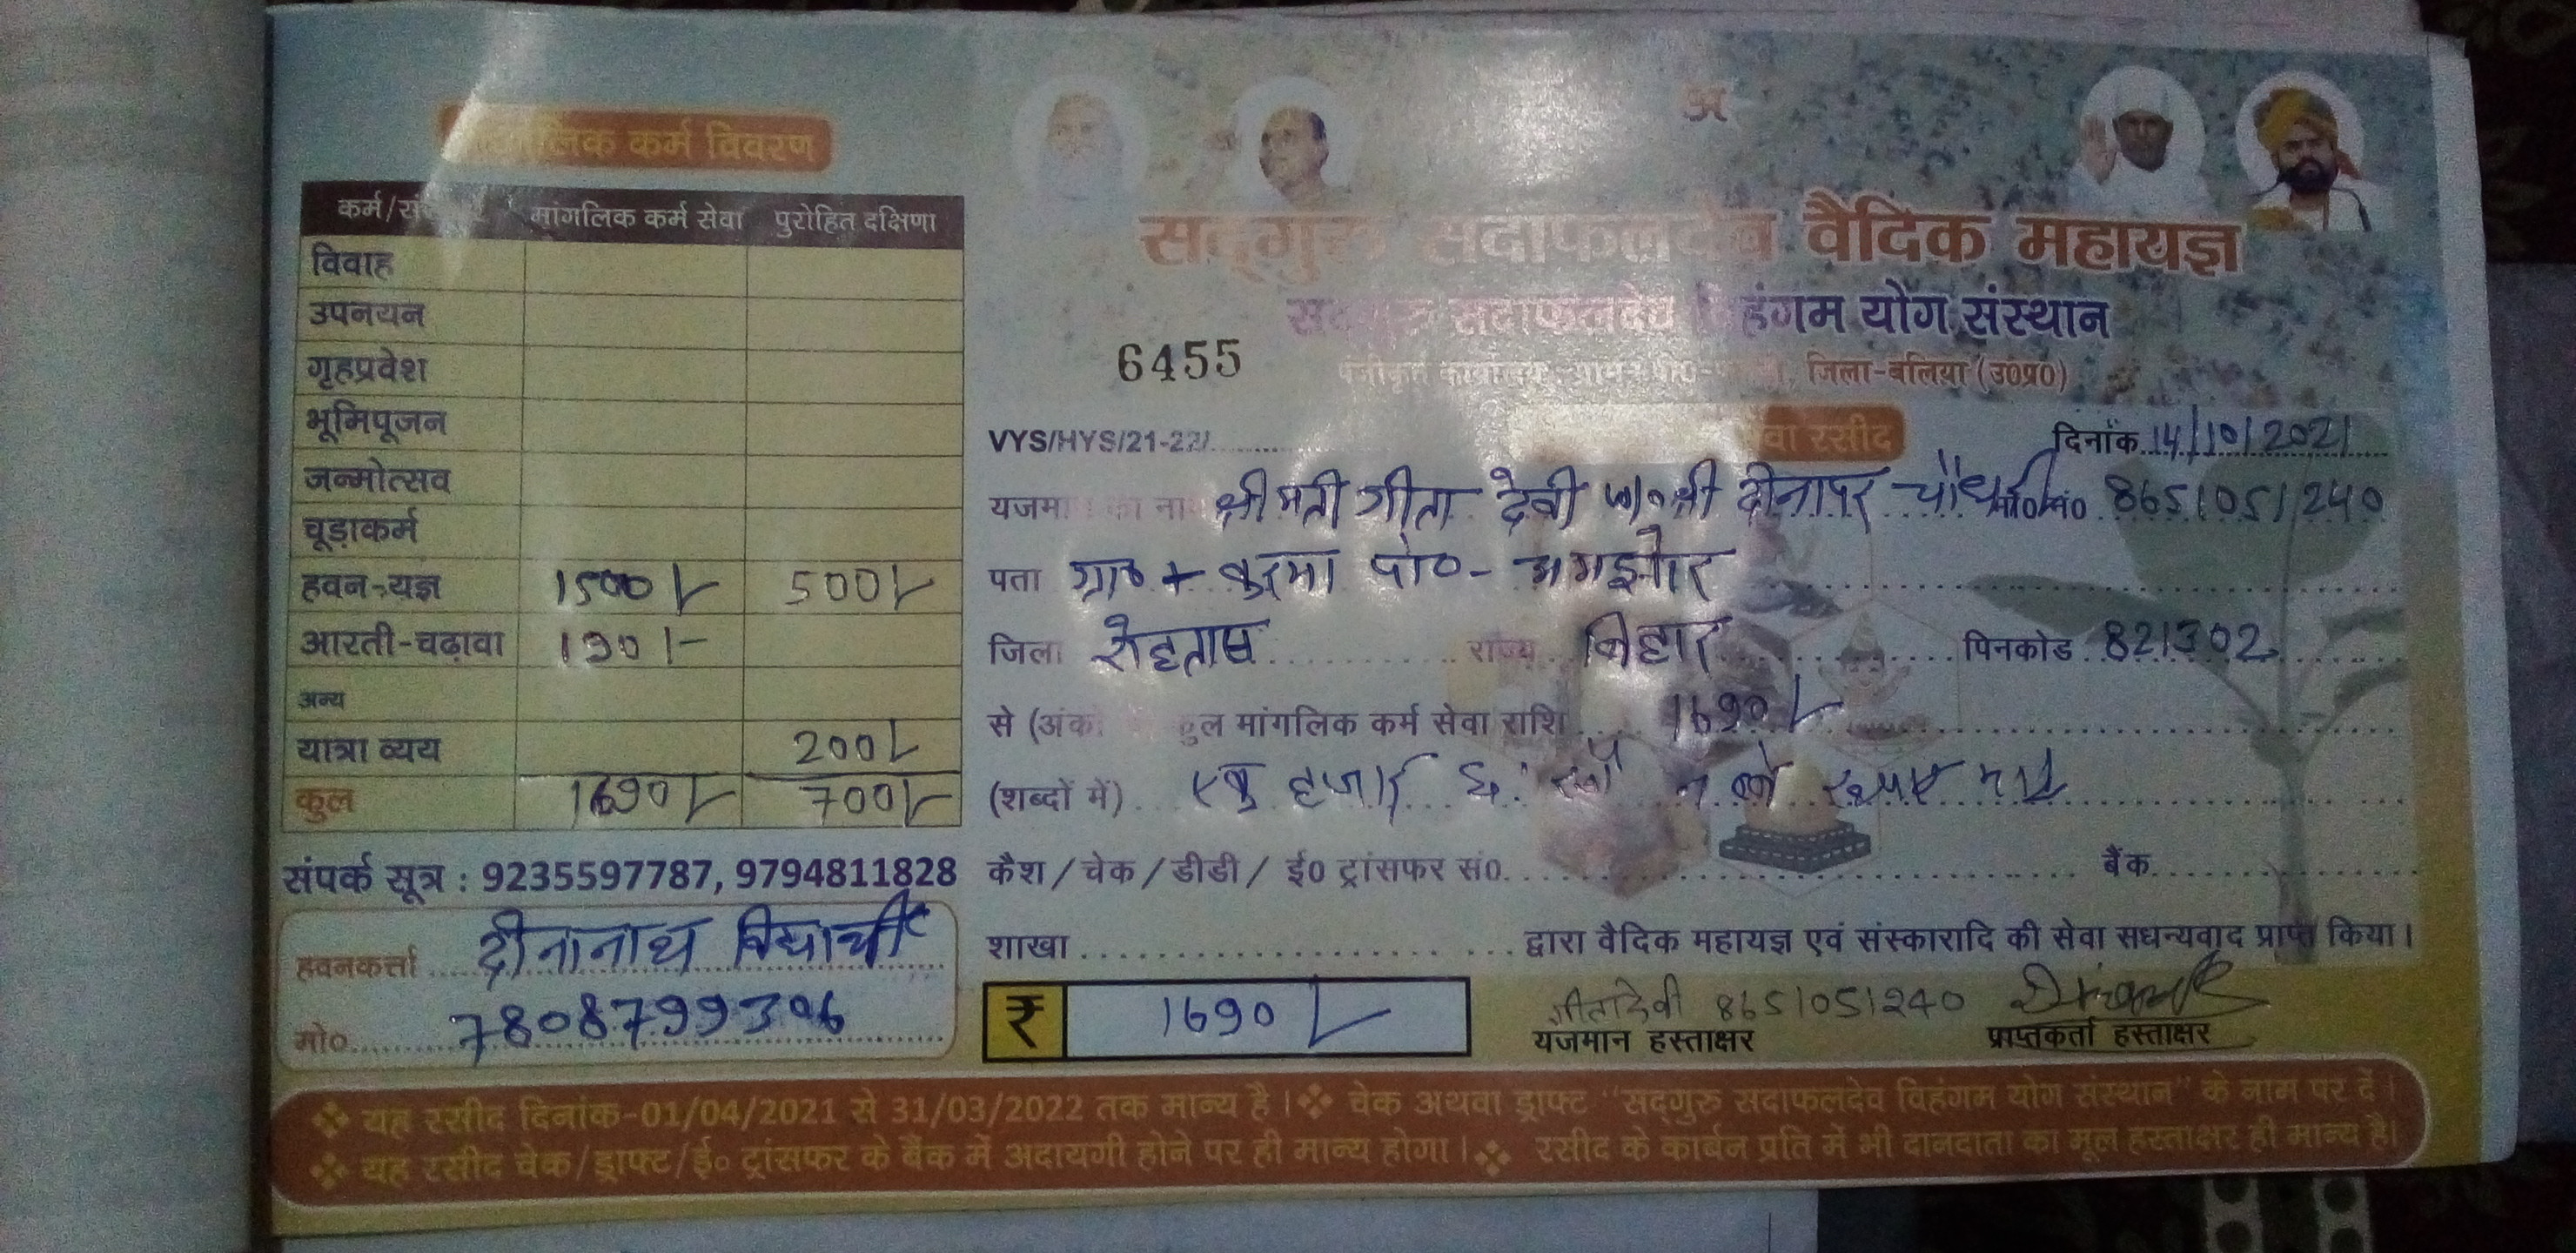 कर्म विवरण
मांगलिक कर्म सेवा पुरोहित दक्षिणा
विवाह
उपनयन
गृहप्रवेश
भूमिपूजन
जन्मोत्सव
चूड़ाकर्म
हवन-यज्ञ 1500/- 500/-
आरती-चढ़ावा 190/-
अन्य
यात्रा व्यय 200/-
कुल 1690/- 700/-
संपर्क सूत्र : 9235597787, 9794811828
हवनकर्त्ता दीनानाथ विद्यार्थी
मो० 7808799306
सद्गुरु सदाफलदेव वैदिक महायज्ञ
सद्गुरु सदाफलदेव विहंगम योग संस्थान
6455
जिला-बलिया (उ०प्र०)
VYS/HYS/21-22/
रसीद
दिनांक 14/10/2021
श्रीमती गीता देवी मो०नं० 8651051240
पता ग्रा०+ पो०-
जिला रोहतास राज्य बिहार पिनकोड 821302
कुल मांगलिक कर्म सेवा राशि 1690/-
(शब्दों में) एक हजार छः सौ नब्बे रूपए मात्र
कैश / चेक / डीडी / ई० ट्रांसफर सं० बैंक
शाखा द्वारा वैदिक महायज्ञ एवं संस्कारादि की सेवा सधन्यवाद प्राप्त किया।
₹ 1690/-
गीता देवी 8651051240
यजमान हस्ताक्षर प्राप्तकर्ता हस्ताक्षर
❖ यह रसीद दिनांक-01/04/2021 से 31/03/2022 तक मान्य है। ❖ चेक अथवा ड्राफ्ट "सद्गुरु सदाफलदेव विहंगम योग संस्थान" के नाम पर दें।
❖ यह रसीद चेक/ड्राफ्ट/ई० ट्रांसफर के बैंक में अदायगी होने पर ही मान्य होगा। ❖ रसीद के कार्बन प्रति में भी दानदाता का मूल हस्ताक्षर ही मान्य है।